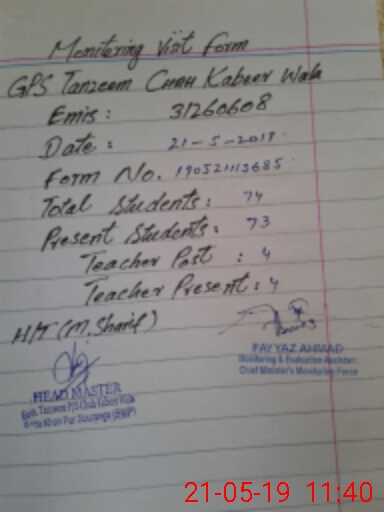 Monitering Visit Form
GPS Tanzeem Chah Kabeer Wala
Emis: 31260608
Date: 21-5-2019
Form No. 190521113685
Total Students: 74
Present Students: 73
Teacher Post: 4
Teacher Present: 4
H/T (M. Sharif)
FAYYAZ AHMAD
Monitoring & Evaluation Assistant
Chief Minister's Monitoring Force
HEAD MASTER
21-05-19 11:40